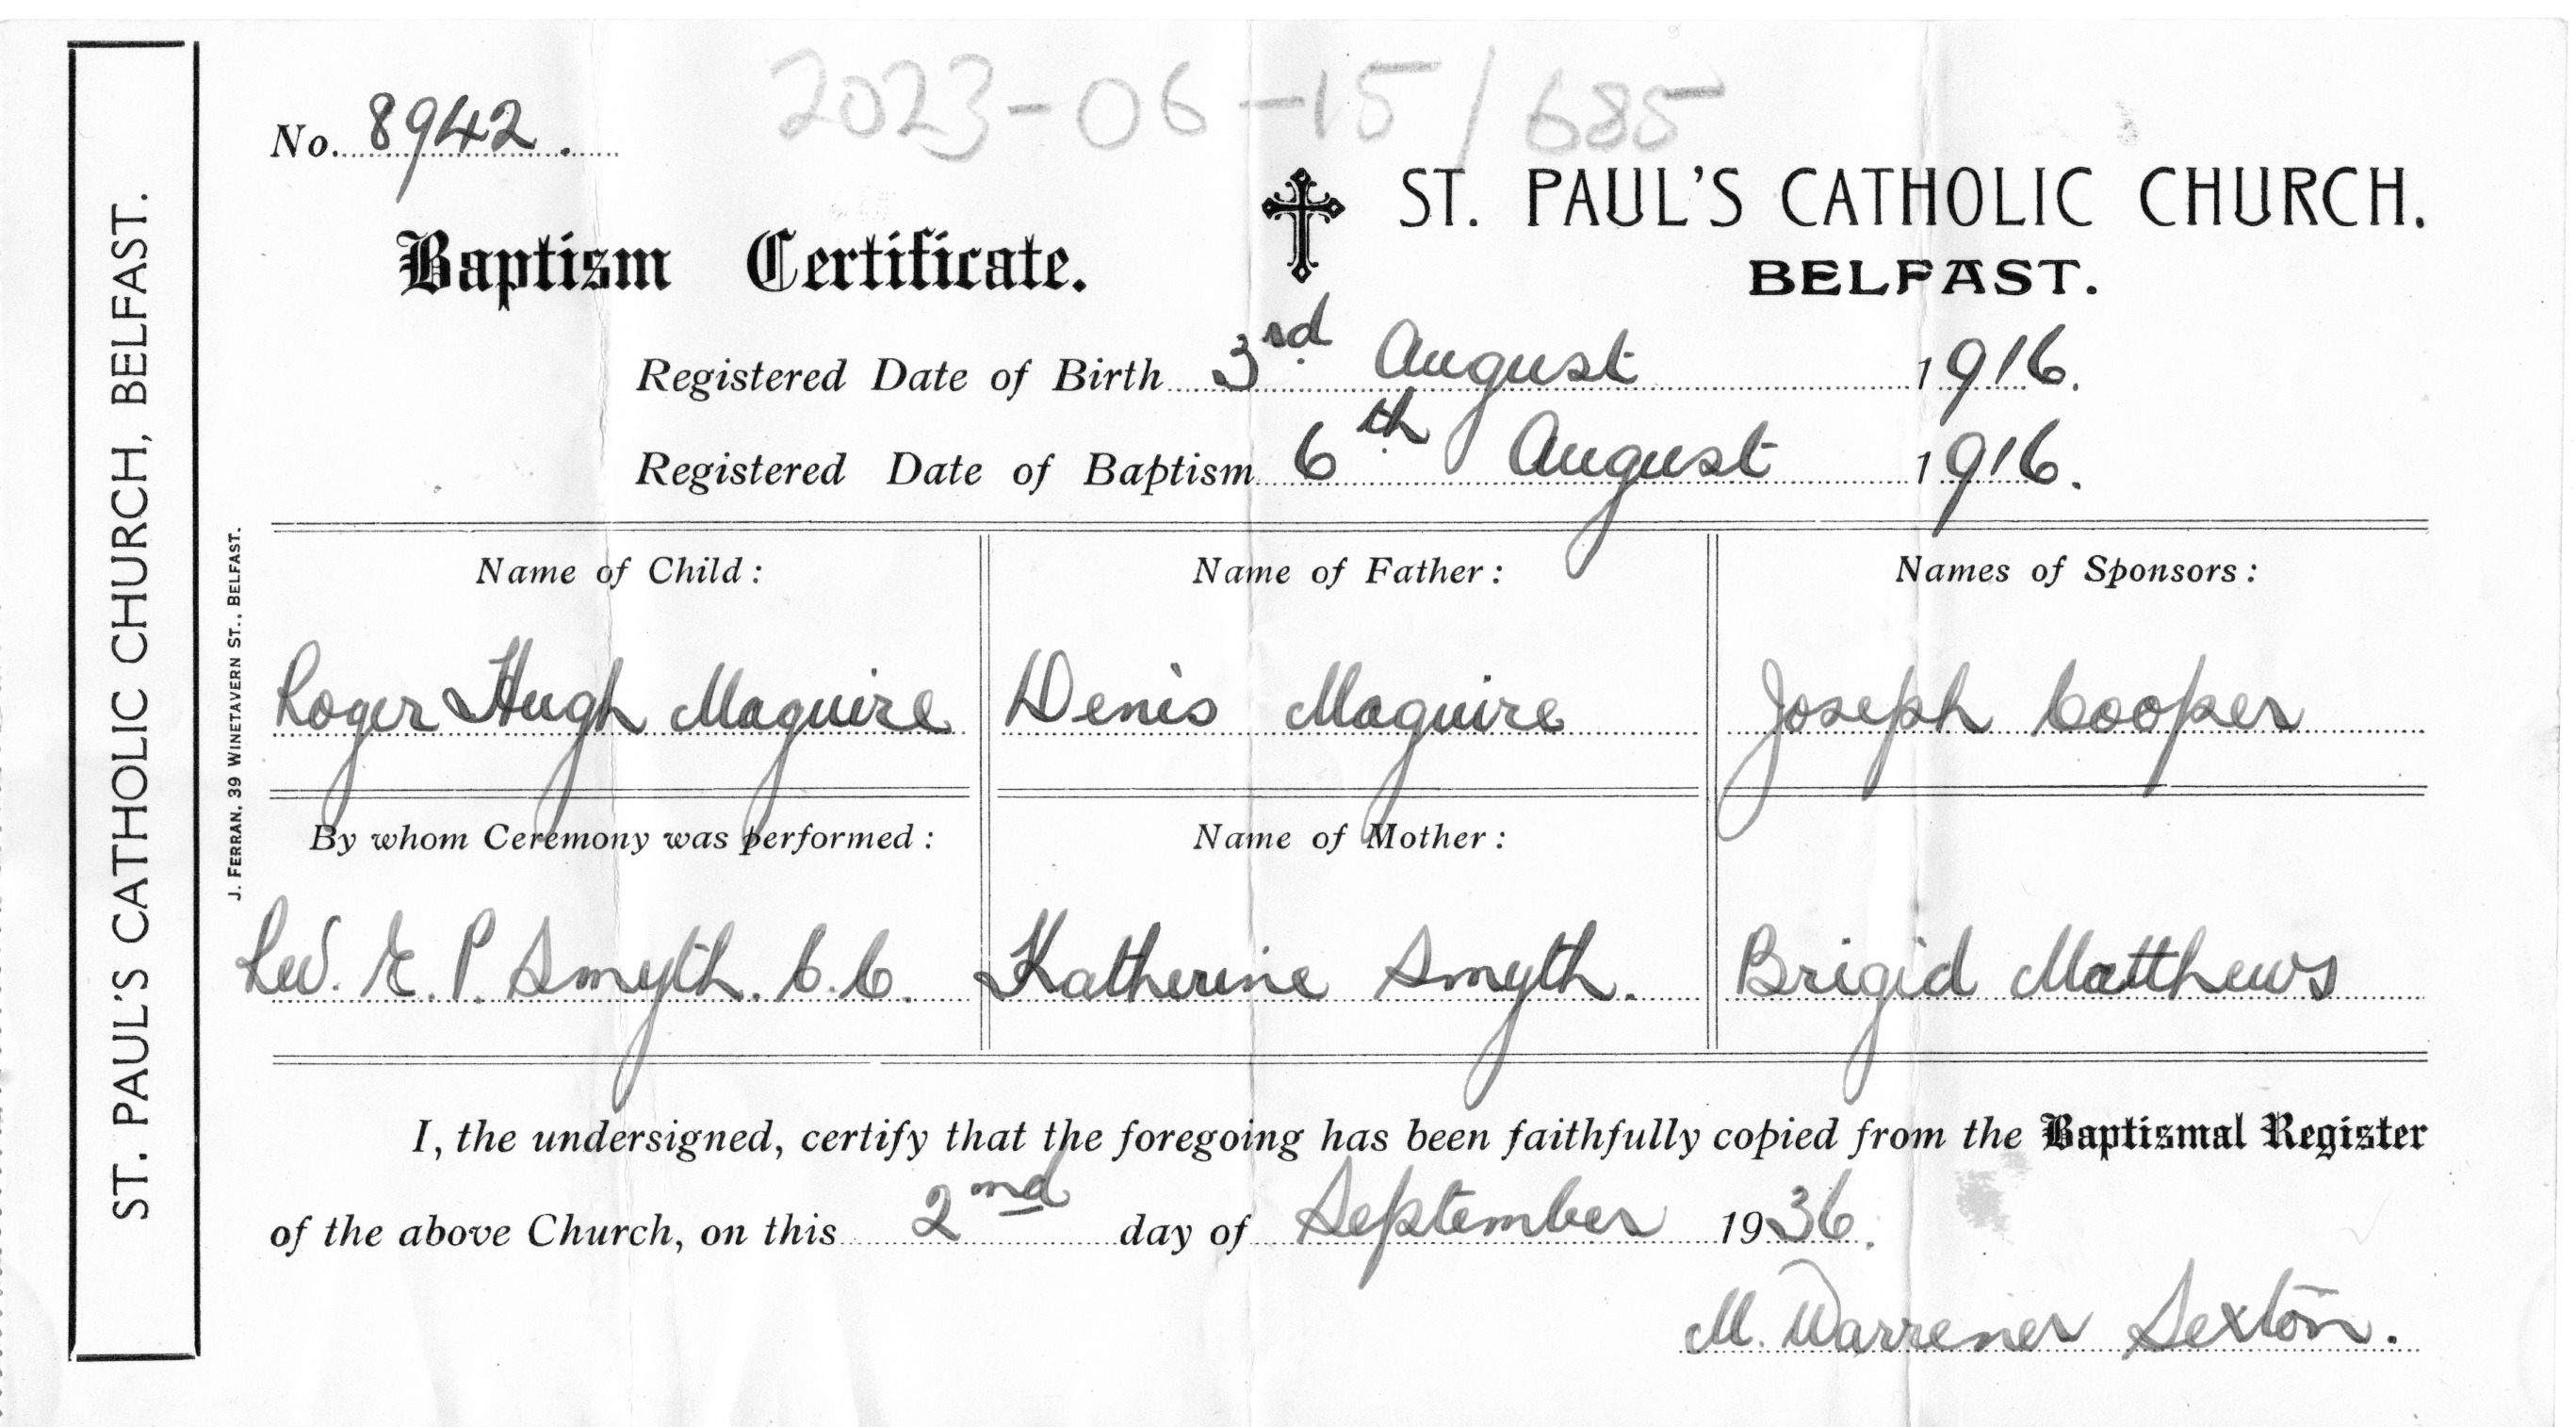 2023-06-15/685
No. 8942.
ST. PAUL'S CATHOLIC CHURCH.
BELFAST.
Baptism Certificate.
Registered Date of Birth 3rd August 1916.
Registered Date of Baptism 6th August 1916.
Name of Child:
Roger Hugh Maguire
Name of Father:
Denis Maguire
Names of Sponsors:
Joseph Cooper
By whom Ceremony was performed:
Rev. E. P. Smyth. C.C.
Name of Mother:
Katherine Smyth.
Brigid Matthews
I, the undersigned, certify that the foregoing has been faithfully copied from the Baptismal Register
of the above Church, on this 2nd day of September 1936.
M. Warrener Sexton.
ST. PAUL'S CATHOLIC CHURCH, BELFAST.
J. FERRAN, 39 WINETAVERN ST., BELFAST.